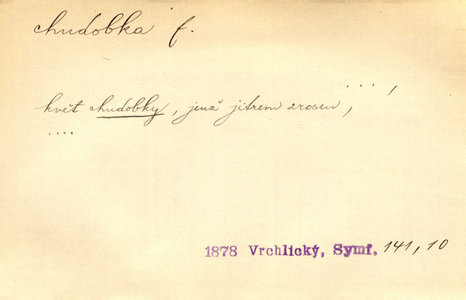 chudobka f.
květ chudobky, jenž jitrem zrosen, ...,
....
1878 Vrchlický, Symf. 141, 10